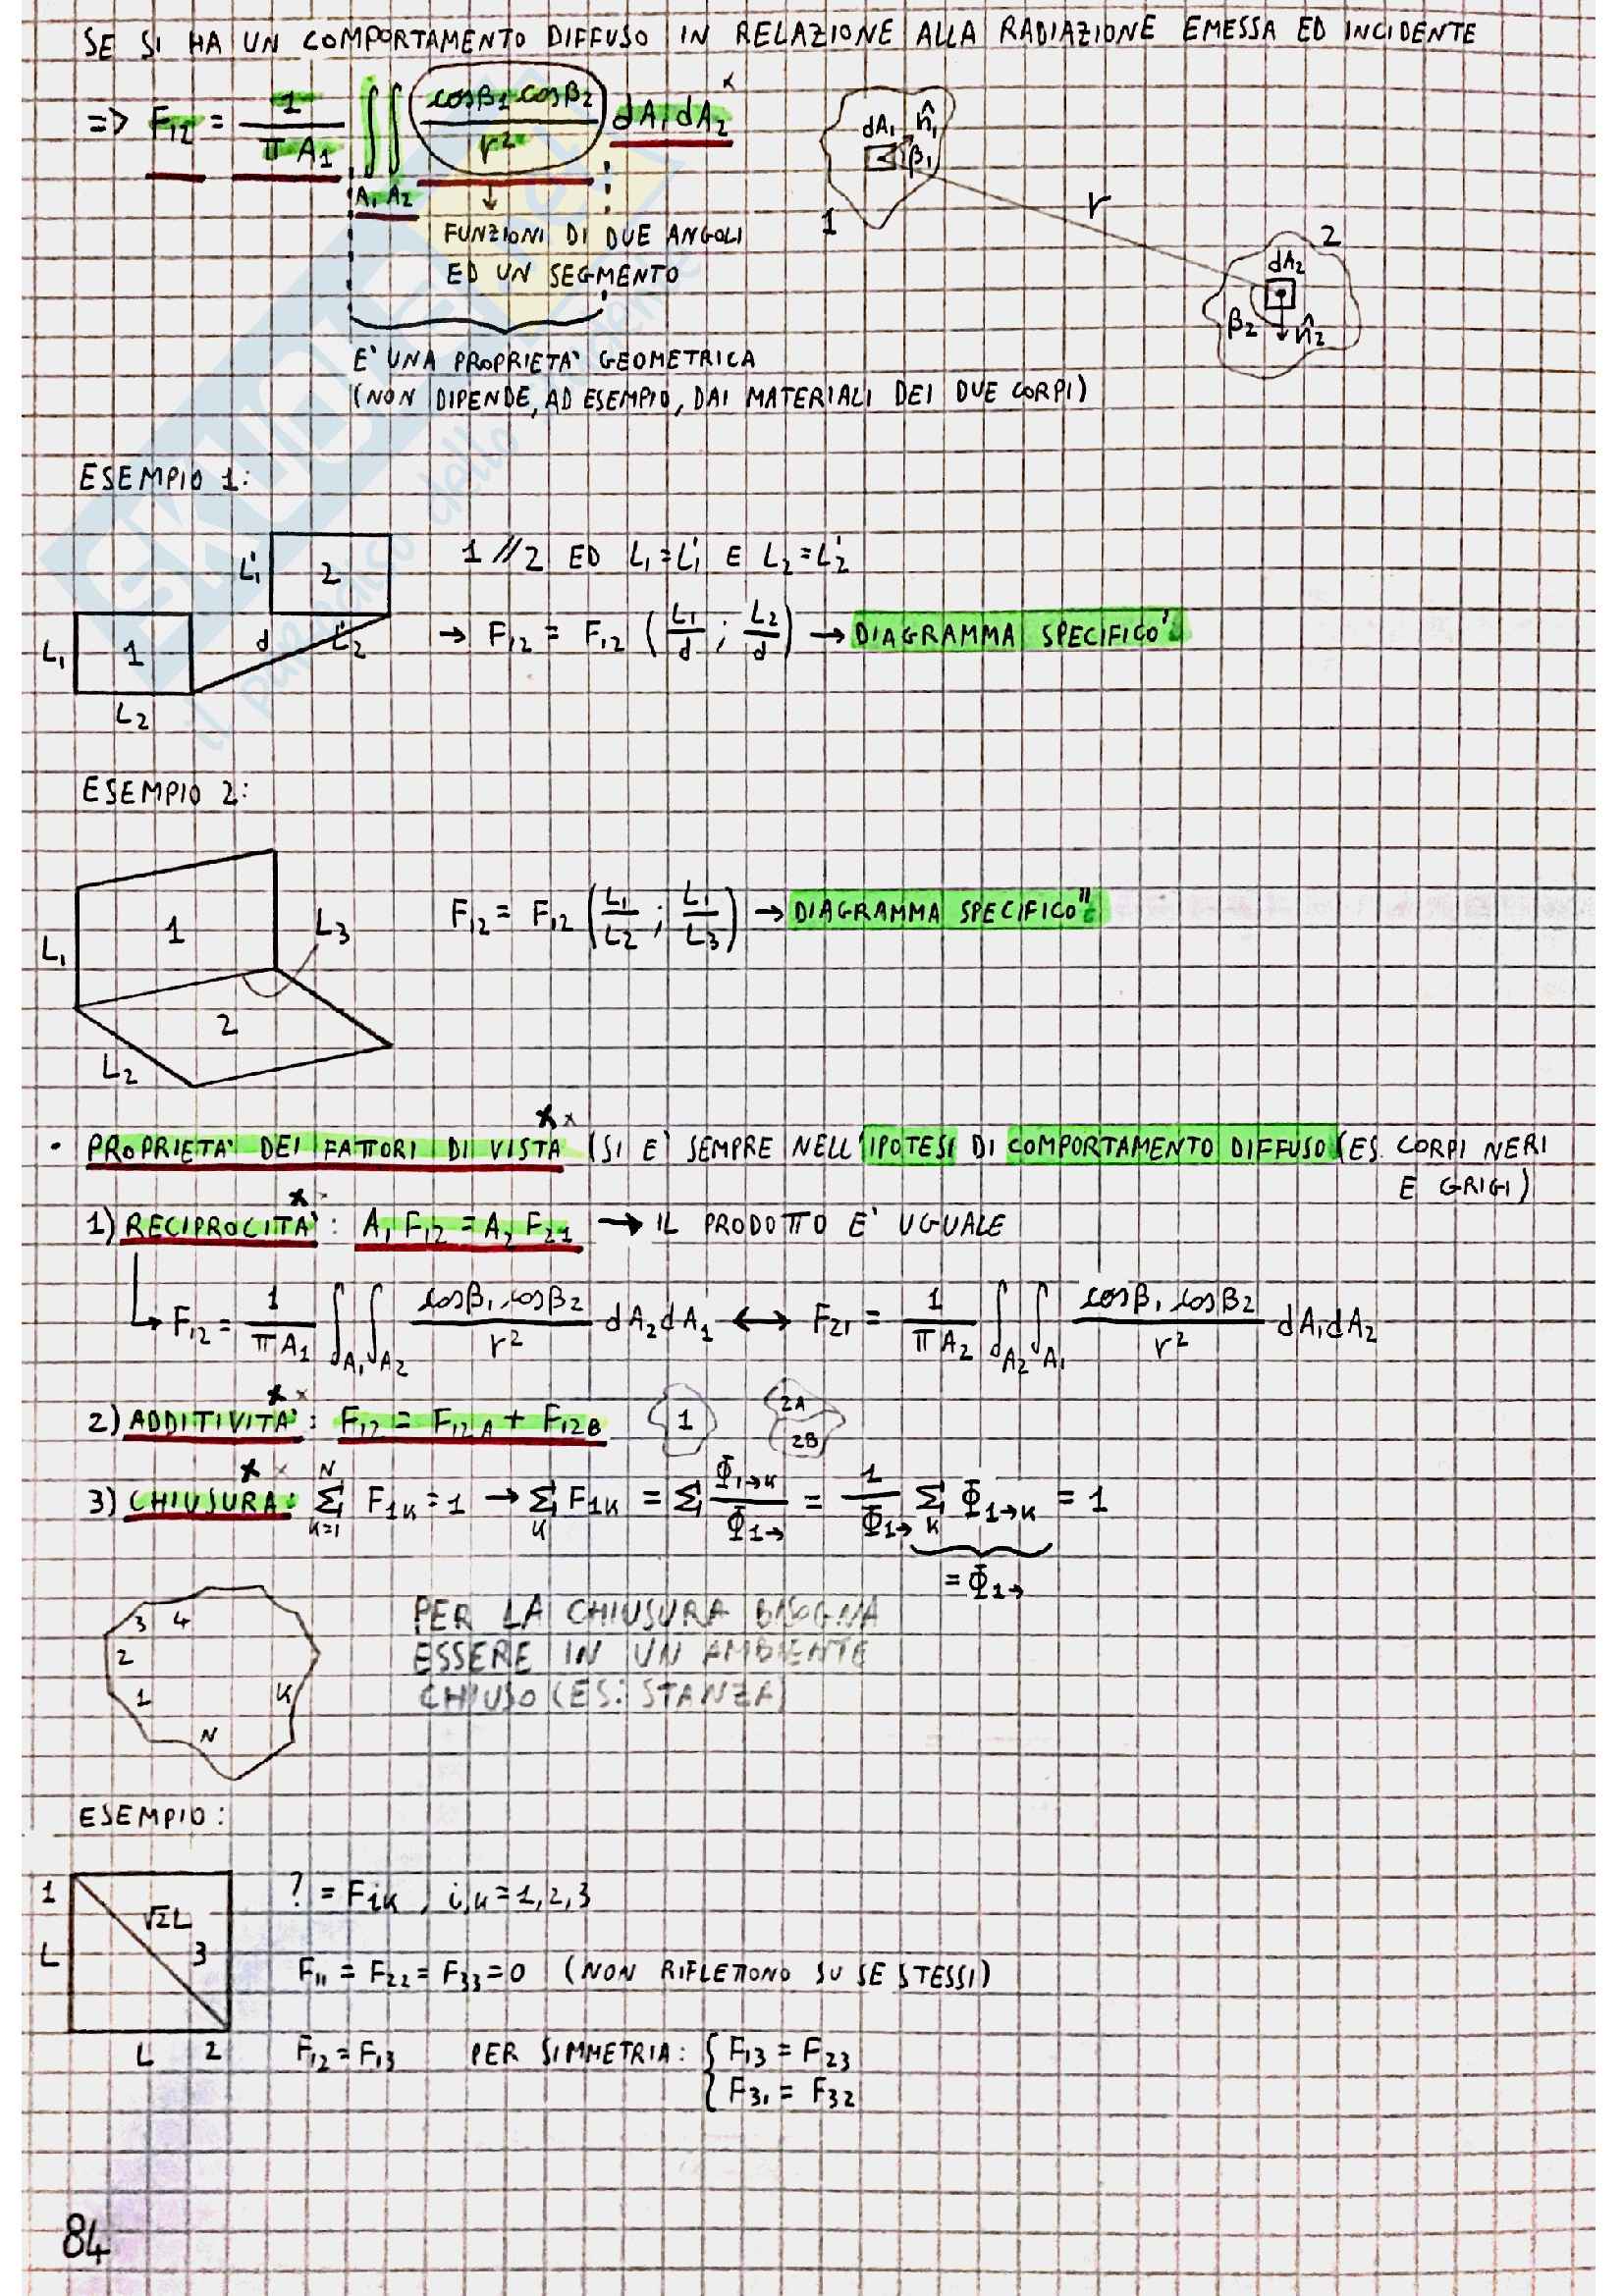 SE SI HA UN COMPORTAMENTO DIFFUSO IN RELAZIONE ALLA RADIAZIONE EMESSA ED INCIDENTE
=> F₁₂ = 1/(π A₁) ∫∫_(A₁ A₂) (cosβ₁·cosβ₂)/r² dA₁ dA₂
dA₁ n̂₁ β₁
1
r
2
dA₂
β₂ n̂₂
FUNZIONI DI DUE ANGOLI
ED UN SEGMENTO
E' UNA PROPRIETA' GEOMETRICA
(NON DIPENDE, AD ESEMPIO, DAI MATERIALI DEI DUE CORPI)
ESEMPIO 1:
L₁' 2
1 // 2 ED L₁ = L₁' E L₂ = L₂'
L₁ 1 d L₂'
L₂
→ F₁₂ = F₁₂ (L₁/d ; L₂/d) → DIAGRAMMA SPECIFICO'
ESEMPIO 2:
L₁ 1 L₃
2
L₂
F₁₂ = F₁₂ (L₁/L₂ ; L₁/L₃) → DIAGRAMMA SPECIFICO"
• PROPRIETA' DEI FATTORI DI VISTA (SI E' SEMPRE NELL'IPOTESI DI COMPORTAMENTO DIFFUSO (ES. CORPI NERI
E GRIGI)
1) RECIPROCITA': A₁ F₁₂ = A₂ F₂₁ → IL PRODOTTO E' UGUALE
F₁₂ = 1/(π A₁) ∫_A₁ ∫_A₂ (cosβ₁·cosβ₂)/r² dA₂ dA₁ ↔ F₂₁ = 1/(π A₂) ∫_A₂ ∫_A₁ (cosβ₁ cosβ₂)/r² dA₁ dA₂
2) ADDITIVITA': F₁₂ = F₁₂A + F₁₂B 1 2A 2B
3) CHIUSURA: Σ_(K=1)^N F₁K = 1 → Σ_K F₁K = Σ Φ₁→K/Φ₁→ = 1/Φ₁→ Σ_K Φ₁→K = 1
= Φ₁→
3 4
2
1 K
N
PER LA CHIUSURA BISOGNA
ESSERE IN UN AMBIENTE
CHIUSO (ES: STANZA)
ESEMPIO:
1 √2L
L 3
L 2
? = Fik , i,k = 1,2,3
F₁₁ = F₂₂ = F₃₃ = 0 (NON RIFLETTONO SU SE STESSI)
F₁₂ = F₁₃ PER SIMMETRIA: { F₁₃ = F₂₃
F₃₁ = F₃₂
84